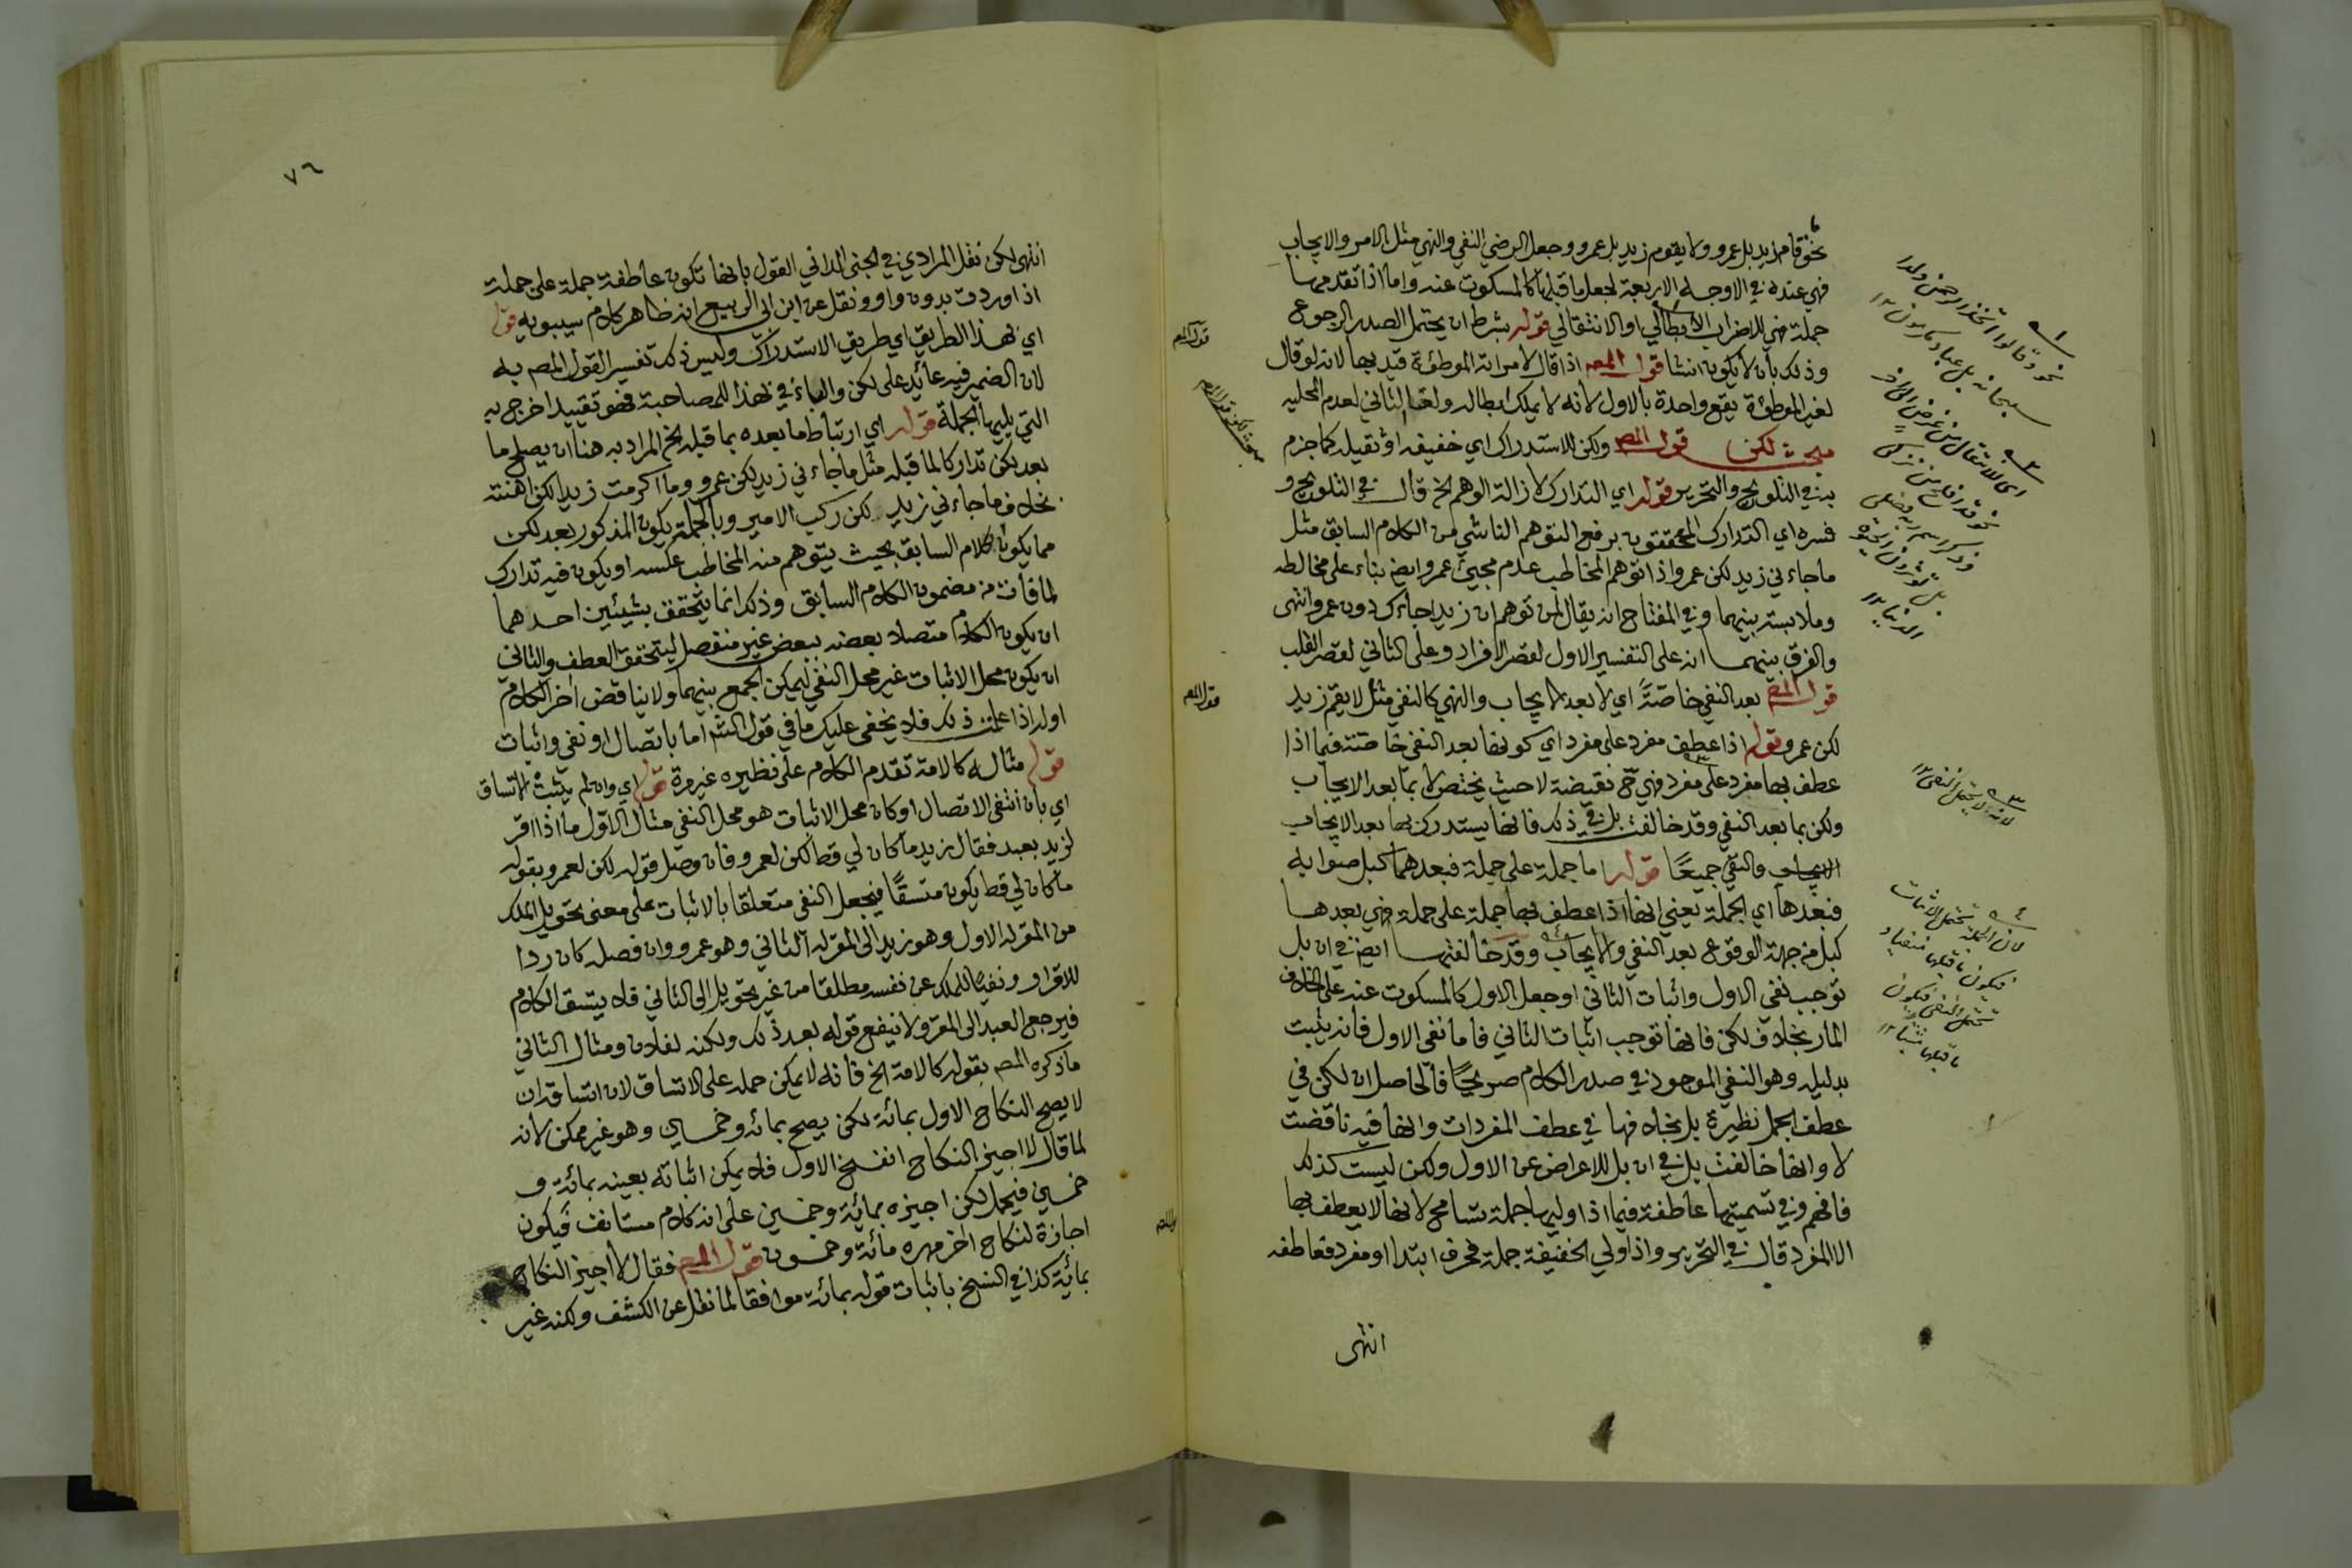 نحو قام زيد بل عمرو ولا يقوم زيد بل عمرو وجعل الرضي النفي والنهي مثل الامر والايجاب
فهي عنده في الاوجه الاربعة لجعل ما قبلها كالمسكوت عنه واما اذا تقدمها
جملة فهي للاضراب الابطالي او الانتقالي قوله بشرط ان يحتمل الصدر الرجوع
وذلك بان لا يكون انشا قول المصه اذا قال لامراته الموطئة قيد بها لانه لو قال
لغير الموطئة يقع واحدة بالاول لانه لا يملك ابطاله ولغا الثاني لعدم المحلية
مبحث لكن قول المص ولكن للاستدراك اي خفيفه او ثقيله كما جزم
به في التلويح والتحرير قوله اي التدارك لازالة الوهم الخ قال في التلويح و
فسره اي التدارك المحققون برفع التوهم الناشي من الكلام السابق مثل
ما جاءني زيد لكن عمرو اذا توهم المخاطب عدم مجيئ عمرو ايض بناء على مخالطة
وملابسة بينهما وفي المفتاح انه يقال لمن توهم ان زيدا جاءك دون عمرو انتهى
والفرق بينهما انه على التفسير الاول لقصر الافراد وعلى الثاني لقصر القلب
قول المص بعد النفي خاصّةً اي لا بعد الايجاب والنهي كالنفي مثل لا يقم زيد
لكن عمرو قوله اذا عطف مفرد على مفرد اي كونها بعد النفي خاصّة فيما اذا
عطف بها مفرد على مفرد فهي ح نقيضة لا حيث يختص لا بما بعد الايجاب
ولكن بما بعد النفي وقد خالفت بل في ذلك فانها يستدرك بها بعد الايجاب
الايجاب والنفي جميعًا قوله اما جملة على جملة فبعدهما كبل صوابه
فبعدها اي الجملة يعني انها اذا عطف بها جملة على جملة فهي بعدها
كبل من جهة الوقوع بعد النفي والايجاب وقد خالفتها ايض في ان بل
توجب نفي الاول واثبات الثاني او جعل الاول كالمسكوت عنه على الخلاف
المار بخلاف لكن فانها توجب اثبات الثاني فاما نفي الاول فانه يثبت
بدليله وهو النفي الموجود في صدر الكلام صريحًا فالحاصل ان لكن في
عطف الجمل نظيرة بل بخلافها في عطف المفردات وانها فيه ناقضت
لا وانها خالفت بل في ان بل للاعراض عن الاول ولكن ليست كذلك
فافهم وفي تسميتها عاطفة فيما اذا وليها جملة تسامح لانها لا يعطف بها
الا المفرد قال في التحرير واذا ولي الخفيفة جملة فحرف ابتدا او مفرد فعاطفه
انتهى
نحو وقالوا اتخذ الرحمن ولدا
سبحانه بل عباد مكرمون ١٢
اي الانتقال من غرض الى آخر
نحو قد افلح من تزكى
وذكر اسم ربه فصلى
بل تؤثرون الحيوة
الدنيا ١٢
لانه لا يحتمل النفي ١٢
لان الجملة تحتمل الاثبات
فيكون ما قبلها منفيا و
تحتمل النفي فيكون
ما قبلها مثبتا ١٢
٧٦
انتهى لكن نقل المرادي في الجنى الداني القول بانها تكون عاطفة جملة على جملة
اذا وردت بدون واو ونقل عن ابن ابي الربيع انه ظاهر كلام سيبويه قوله
اي بهذا الطريق اي طريق الاستدراك وليس ذلك تفسير القول المص به
لان الضمير فيه عائد على لكن والباء في بهذا للمصاحبة فهو تقييد اخرج به
التي يليها الجملة قوله اي ارتباط ما بعده بما قبله الخ المراد به هنا ان يصلح ما
بعد لكن تداركا لما قبله مثل ما جاءني زيد لكن عمرو وما اكرمت زيدا لكن اهنته
بخلاف ما جاءني زيد لكن ركب الامير وبالجملة يكون المذكور بعد لكن
مما يكون الكلام السابق بحيث يتوهم منه المخاطب عكسه او يكون فيه تدارك
لما فات من مضمون الكلام السابق وذلك انما يتحقق بشيئين احدهما
ان يكون الكلام متصلا بعضه ببعض غير منفصل ليتحقق العطف والثاني
ان يكون محل الاثبات غير محل النفي ليمكن الجمع بينهما ولا يناقض اخر الكلام
اوله اذا علمت ذلك فلا يخفى عليك ما في قول الش اما باتصال او نفي واثبات
قوله مثاله كالامة تقدم الكلام على نظيره غير مرة قوله اي وان لم يثبت الاتساق
اي بان انتفى الاتصال او كان محل الاثبات هو محل النفي مثال الاول ما اذا اقر
لزيد بعبد فقال زيد ما كان لي قط لكن لعمرو فان وصل قوله لكن لعمرو بقوله
ما كان لي قط يكون متسقًا فيجعل النفي متعلقا بالاثبات على معنى تحويل الملك
من المقر له الاول وهو زيد الى المقر له الثاني وهو عمرو وان فصله كان ردا
للاقرار ونفيا للملك عن نفسه مطلقا من غير تحويل الى الثاني فلا يتسق الكلام
فيرجع العبد الى المقر ولا ينفع قوله بعد ذلك ولكنه لفلان ومثال الثاني
ما ذكره المص بقوله كالامة الخ فانه لا يمكن حمله على الاتساق لان اتساقه ان
لا يصح النكاح الاول بمائة لكن يصح بمائة وخمسين وهو غير ممكن لانه
لما قال لا اجيز النكاح انفسخ الاول فلا يمكن اثباته بعينه بمائة و
خمسين فيحمل لكن اجيزه بمائة وخمسين على انه كلام مستانف فيكون
اجازة لنكاح اخر مهره مائة وخمسون قول المص فقال لا اجيز النكاح
بمائة كذا في النسخ باثبات قوله بمائة موافقا لما نقل عن الكشف ولكنه غير